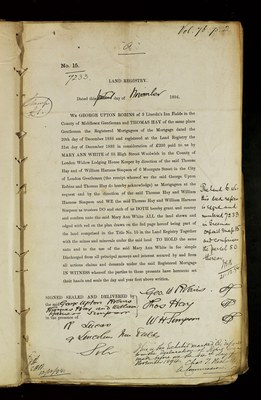 Vol. 71
No. 15.
7233.
LAND REGISTRY.
Dated this second day of November 1894.
WE GEORGE UPTON ROBINS of 9 Lincoln's Inn Fields in the
County of Middlesex Gentleman and THOMAS HAY of the same place
Gentleman the Registered Mortgagees of the Mortgage dated the
20th day of December 1893 and registered at the Land Registry the
21st day of December 1893 in consideration of £200 paid to us by
MARY ANN WHITE of 61 High Street Woolwich in the County of
London Widow Lodging House Keeper by direction of the said Thomas
Hay and of William Harmon Simpson of 8 Moorgate Street in the City
of London Gentleman (the receipt whereof we the said George Upton
Robins and Thomas Hay do hereby acknowledge) as Mortgagees at the
request and by the direction of the said Thomas Hay and William
Harmon Simpson and WE the said Thomas Hay and William Harmon
Simpson as trustees DO and each of us DOTH hereby grant and convey
and confirm unto the said Mary Ann White ALL the land shown and
edged with red on the plan drawn on the 3rd page hereof being part of
the land comprised in the Title No. 15 in the Land Registry Together
with the mines and minerals under the said land TO HOLD the same
unto and to the use of the said Mary Ann White in fee simple
Discharged from all principal moneys and interest secured by and from
all actions claims and demands under the said Registered Mortgage
IN WITNESS whereof the parties to these presents have hereunto set
their hands and seals the day and year first above written.
The land to which
this deed refers
is registered
number 7233
SIGNED SEALED AND DELIVERED by
the said George Upton Robins
Thomas Hay and William
Harmon Simpson
in the presence of
Geo. U. Robins
Thos Hay
W H Simpson
9 Lincolns Inn Fields
Solr